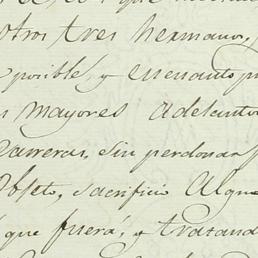 otros tres hermanos,
posible, y
mayores Adelantos
Carreras, sin perdonar
Objeto, sacrificio Algu
que fuera, y trazand